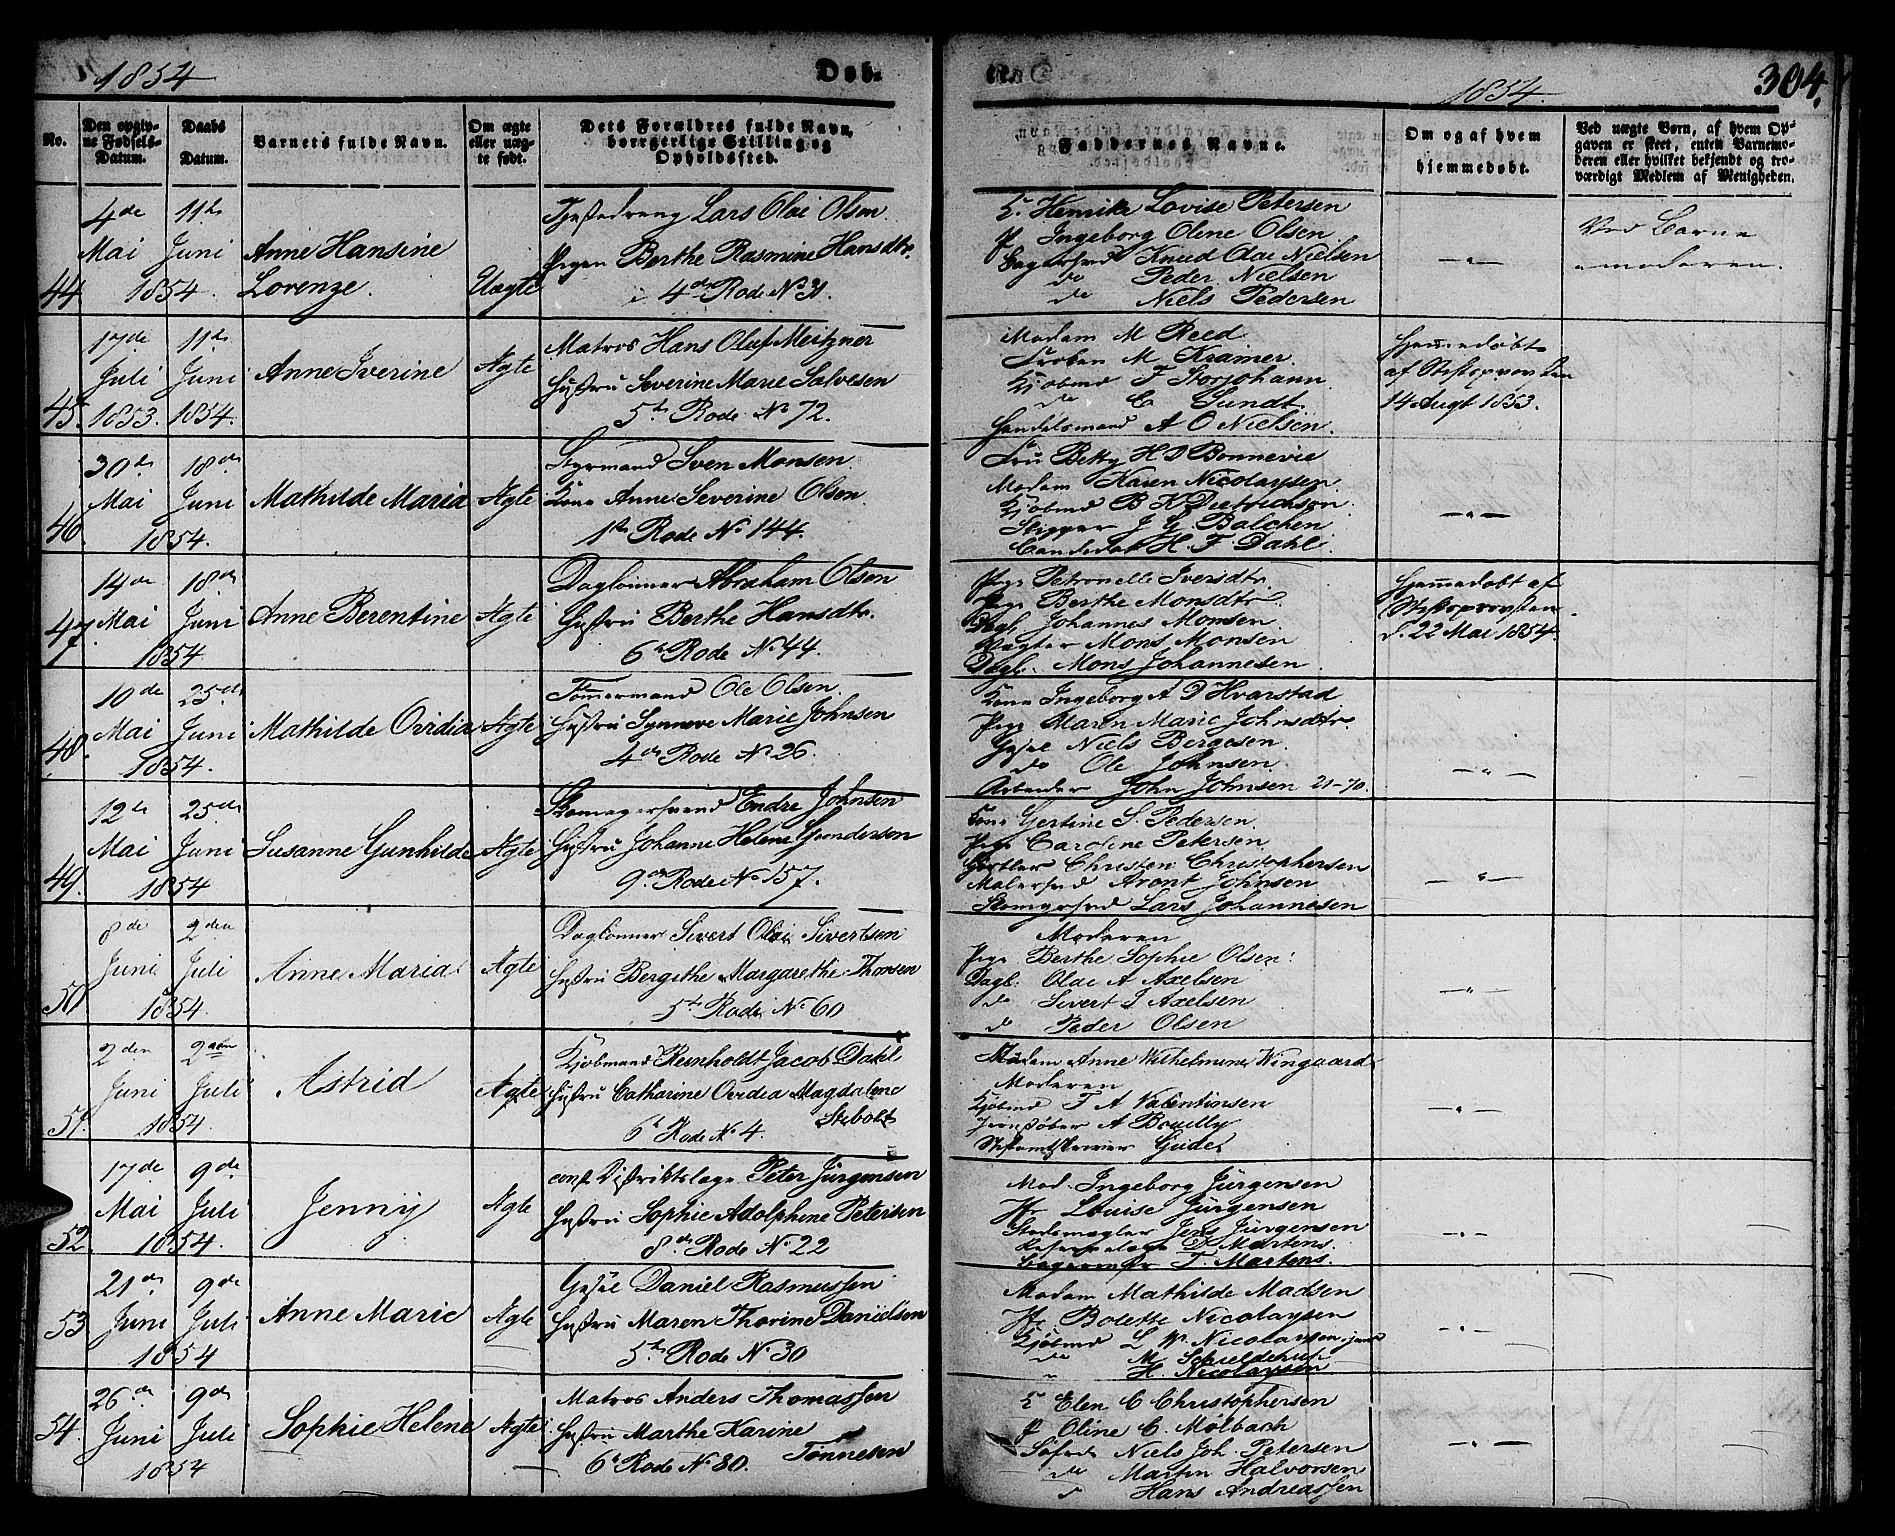 1854
Døb.
1854.
304.
No.
Den opgiv-
ne Fødsels-
Datum.
Daabs
Datum.
Barnets fulde Navn.
Om ægte
eller uæg-
te født.
Dets Forældres fulde Navn,
borgerlige Stilling og
Opholdsted.
Faddernes Navne.
Om og af hvem
hjemmedøbt.
Ved uægte Børn, af hvem Op-
gaven er skeet, enten Barnemo-
deren eller hvilket bekjendt og tro-
værdigt Medlem af Menigheden.
44.
4de
Mai
11te
Juni
1854.
Anne Hansine
Lorenze.
Uægte
Tjenestedreng Lars Olai Olsen.
Pigen Berthe Rasmine Hansdtr.
4de Rode No 31.
K. Henrike Lovise Petersen
P Ingeborg Oline Olsen
Bagersvd Knud Olai Nielsen
do Peder Nielsen
do Niels Pedersen
Ved Barne
moderen.
45.
17de
Juli
1853.
11te
Juni
1854.
Anne Iverine
Ægte
Matros Hans Oluf Meitzner
Hustru Severine Marie Salvesen
5te Rode No 72.
Madam M Reed
Frøken M Kramer
Kjøbmd F Storjohann
do C Sundt.
Handelsmand A O Nielsen.
Hjemmedøbt
af Stiftsprovsten
14 Augt 1853.
46.
30te
Mai
18de
Juni
1854.
Mathilde Maria
Ægte
Styrmand Sven Monsen.
Kone Anne Severine Olsen
1ste Rode No 144.
Fru Betty H D Bonnevie
Madam Karen Nicolaysen.
Kjøbmd B K Dietrichson.
Skipper J G Balchen
Candidat H. F. Dahl.
47.
14de
Mai
18de
Juni
1854
Anne Berentine
Ægte
Dagløinner Abraham Olsen
Hustru Berthe Hansdtr.
6te Rode No 44.
Pige Petronelle Iversdtr
Pige Berthe Monsdtr.
Dagl. Johannes Monsen.
Vægter Mons Monsen
Dagl. Mons Johannesen.
Hjemmedøbt af
Stiftsprovsten.
d. 22 Mai 1854.
48.
10de
Mai
25de
Juni
1854.
Mathilde Ovidia
Ægte
Tømmermand Ole Olsen.
Hustru Synneve Marie Johnsen
4de Rode No 26.
Kone Ingeborg A D Hvarstad
Pige Maren Marie Johnsdtr.
Gesel Niels Bergesen.
do Ole Johnsen.
Arbeider John Johnsen 21-70.
49.
12te
Mai
25de
Juni
1854
Susanne Gunhilde
Ægte
Skomagersvend Endre Johnsen
Hustru Johanne Helene Gundersen
9de Rode No 157.
Kone Gertine S. Pedersen.
Pige Caroline Petersen.
Gørtler Christen Christophersen
Malersvd Aront Johnsen
Skomgrsvd Lars Johannesen
50.
8de
Juni
2den
Juli
1854
Anne Maria
Ægte
Daglønner Sivert Olai Sivertsen
Hustru Bergithe Margarethe Thorsen
5te Rode No 60
Moderen
Pige Berthe Sophie Olsen.
Dagl. Olai A Axelsen
do Sivert J Axelsen
do Peder Olsen
51.
2den
Juni
2den
Juli
1854.
Astrid
Ægte
Kjøbmand Reinholdt Jacob Dahl
Hustru Catharine Ovidia Magdalene
Stibolt
6te Rode No 4.
Madam Anne Wilhelmine Wingaard
Moderen
Kjøbmd F A Valentinsen
A Bouilly
Gude.
52
17de
Mai
9de
Juli
1854.
Jenny
Ægte
const Distriktslæge Peter Jürgensen
Hustru Sophie Adolphine Petersen
8de Rode No 22
Mad. Ingeborg Jürgensen
Fr Louise Jürgensen
Stadsmægler Jens Jürgensen
D Martens.
F. Martens.
53
21de
Juni
9de
Juli
1854
Anne Marie
Ægte
Gesel Daniel Rasmussen
Hustru Maren Thorine Danielsen
5te Rode No 30
Madam Mathilde Madsen
Fr Bolette Nicolaysen
Kjøbmd L W Nicolaysen junr
do M Schielderup
H. Nicolaysen
54.
26de
Juni
9de
Juli
1854
Sophie Helene
Ægte
Matros Anders Thomassen
Hustru Marthe Karine
Tønnesen
6te Rode No 80.
K Elen C Christophersen
P Oline C. Mølbach
Søfd Niels Joh. Petersen
do Martin Halvorsen
do Hans Andreassen